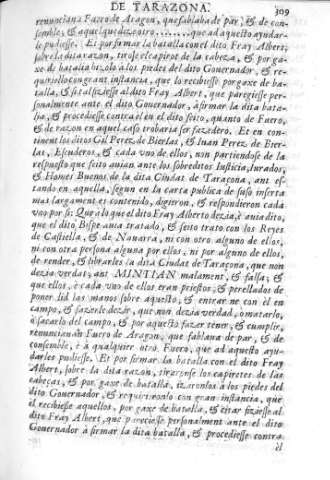 DE TARAZONA. 309
renunciana Fuero de Aragon, que fablaba de par, & de con-
semble, & aqualquiere otro ......... que ad aquesto ayudar-
le pudiesse. Et por firmar la batalla con el dito Fray Albert,
sobre la dita razon, tirose el capirot de la cabeza, & por ga-
xe de batalla lo a los piedes del dito Governador, & re-
quiriolo con grant instancia, que lo recibiesse por gaxe de bata-
talla, & fiziesse al dito Fray Albert, que pareciesse per-
sonalmente ante el dito Governador, a firmar la dita bata-
lla, & procediesse contra el en el dito feito, quanto de Fuero,
& de razon en aquel caso trobaria ser fazedero. Et en con-
tinent los ditos Gil Perez de Bierlas, & Iuan Perez de Bier-
las, Escuderos, & cada uno de ellos, non partiendose de la
respuesta que feito avian ante los sobreditos Iusticia, Iurados,
& Homes Buenos de la dita Ciudat de Taraçona, ant es-
tando en aquella, segun en la carta publica de suso inserta
mas largament es contenido, digieron, & respondieron cada
uno por si: Que a lo que el dito Fray Alberto dezia, è avia dito,
que el dito Bispe avia tratado, & feito trato con los Reyes
de Castiella, & de Navarra, ni con otro alguno de ellos,
ni con otra persona alguna por ellos, ni por alguno de ellos,
de render, & librarles la dita Ciudat de Taraçona, que non
dezia verdat; ant MINTIAN malament, & falsa; &
que ellos, è cada uno de ellos eran priestos, & perellados de
poner lid las manos sobre aquesto, & entrar ne con èl en
campo, & fazerle dezir, que non dezia verdad, o matarlo,
ò sacarlo del campo, & por aquesto fazer tener, & cumplir,
renuncianan Fuero de Aragon, que fablava de par, & de
consemble, è a qualquiere otro Fuero, que ad aquesto ayu-
darles pudiesse. Et por firmar la batalla con el dito Fray
Albert, sobre la dita razon, tirorense los capiretes de las
cabeças, & por gaxe de batalla, itaronlos à los piedes del
dito Governador, & requirieronlo con gran instancia, que
èl recibiesse aquellos, por gaxe de batalla, & citar fiziesse al
dito Fray Albert, que pareciesse personalment ante el dito
Governador à firmar la dita batalla, & procediesse contra
èl